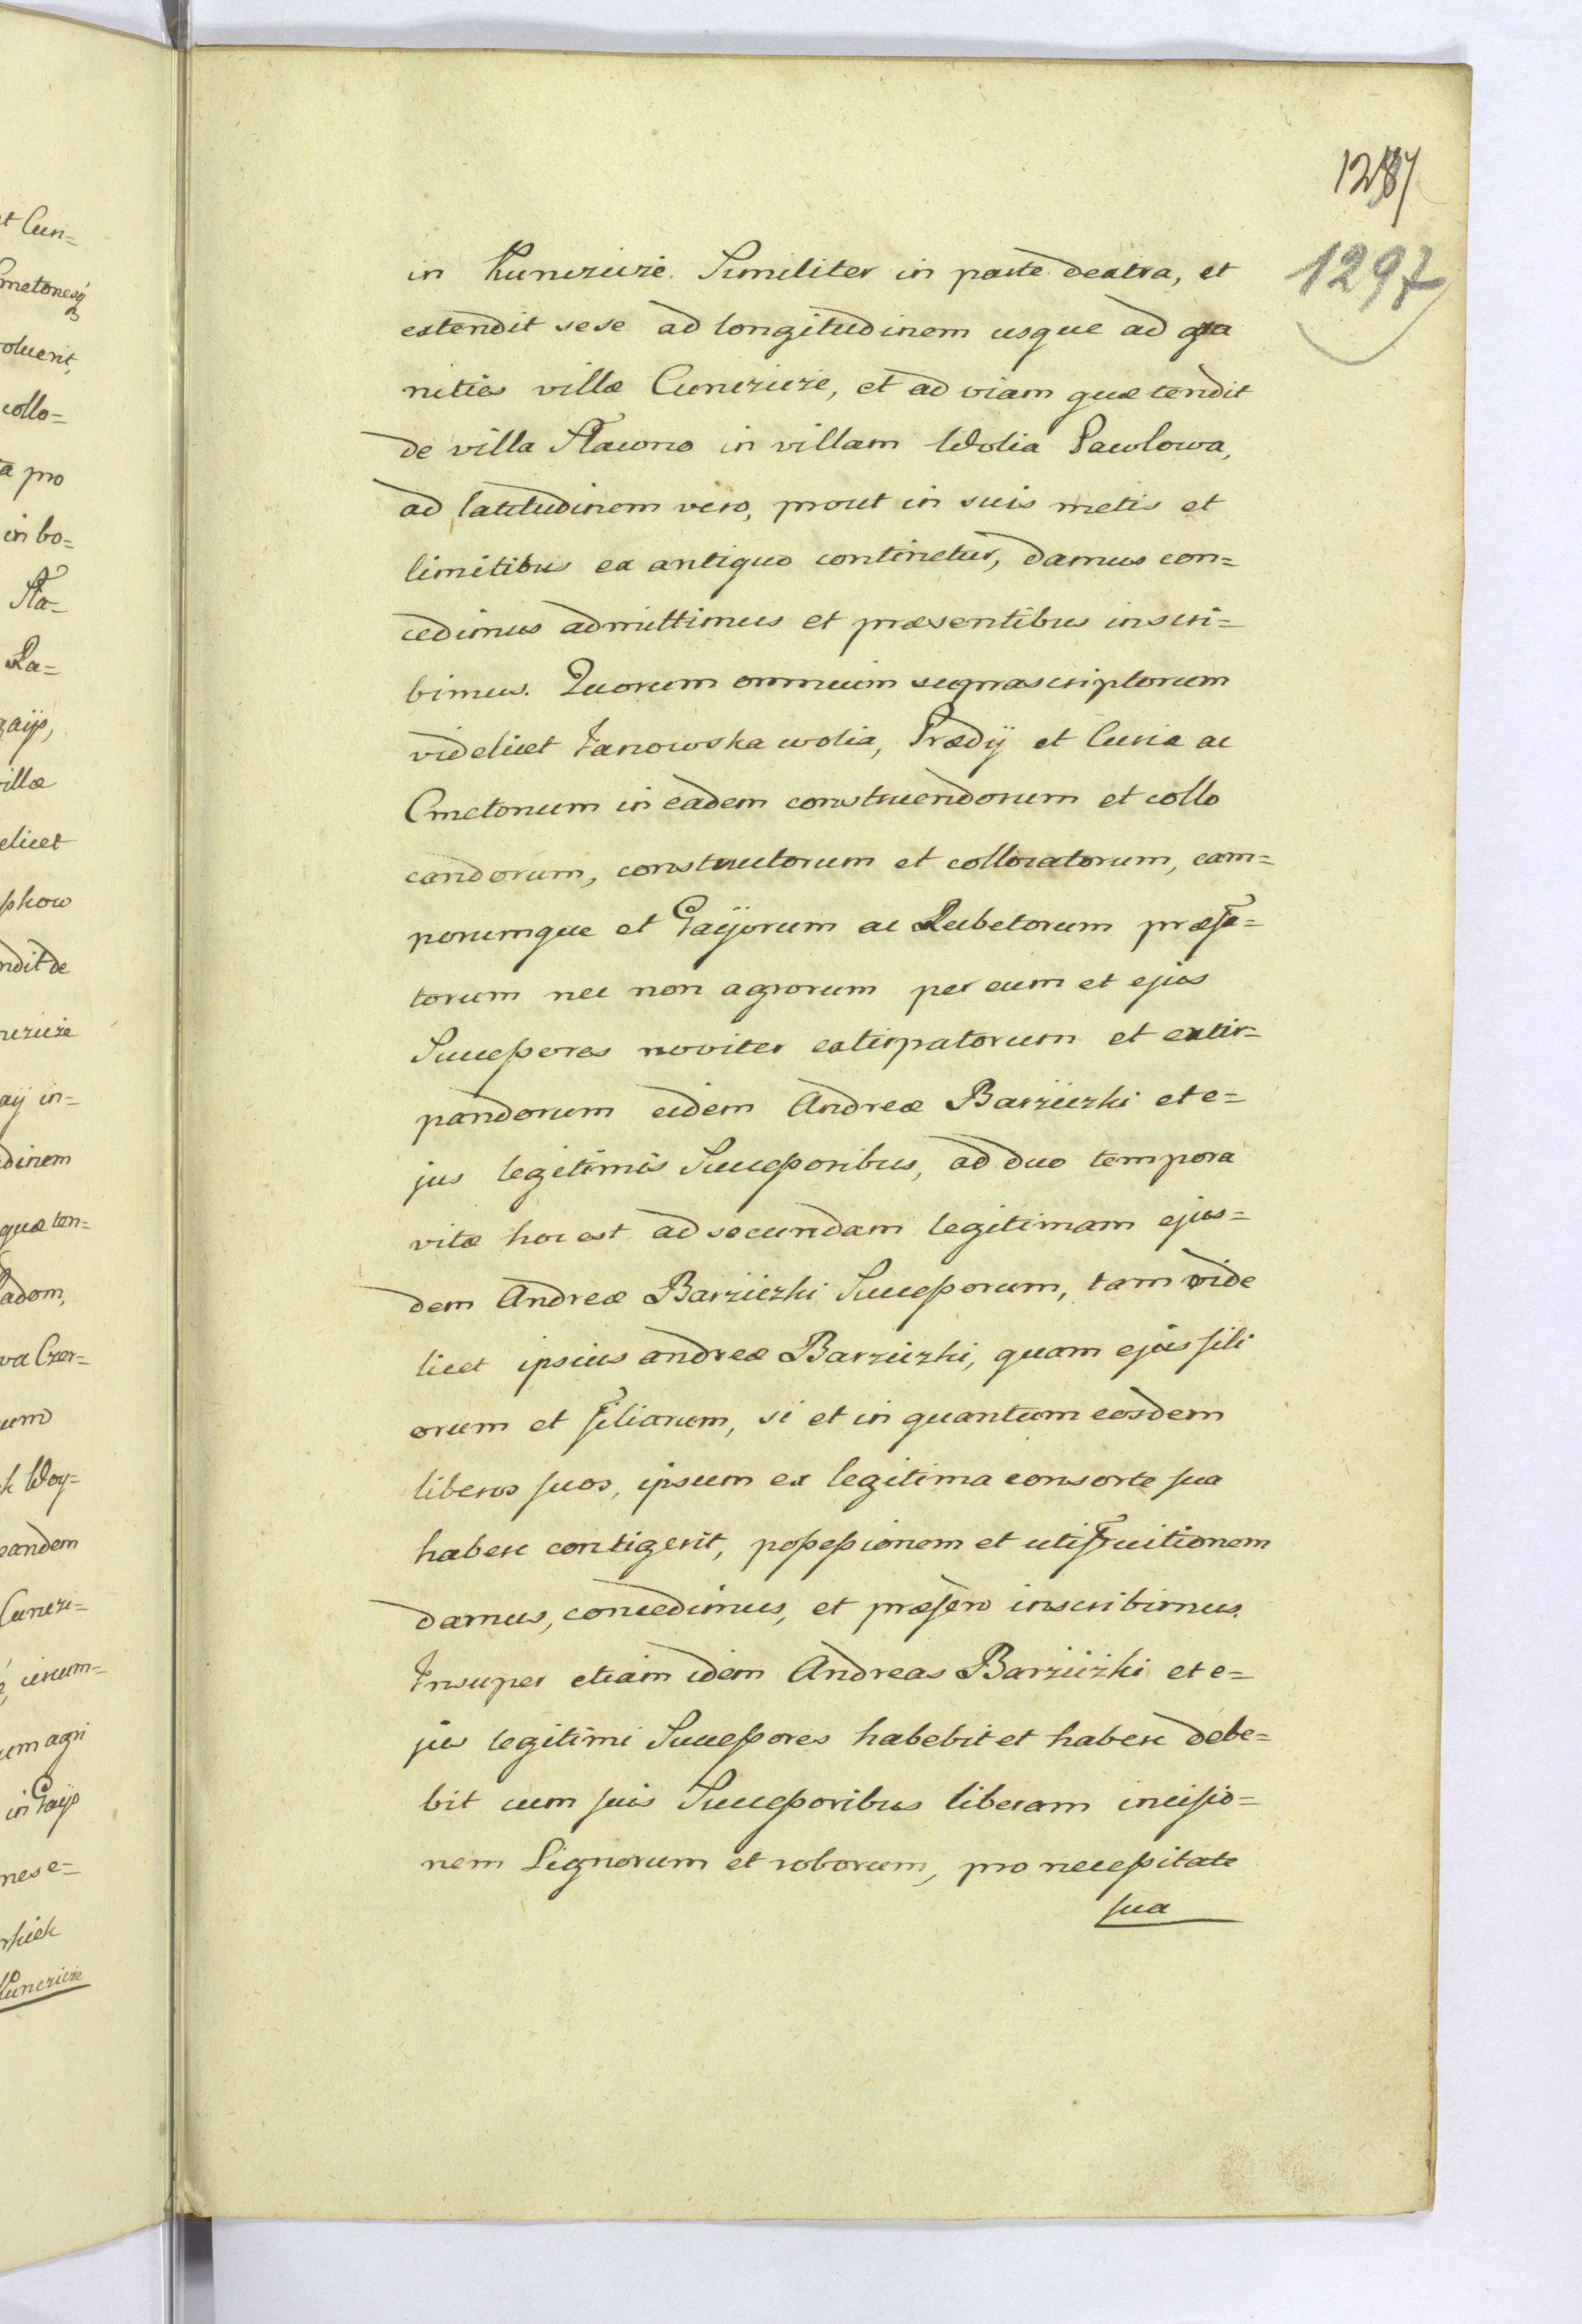 1287
1297
in Kuncziczé. Similiter in parte dextra, et
extendit sese ad longitudinem usque ad gra
nities villæ Cuncziczé, et ad viam quæ tendit
de villa Sławno in villam Wolia Pawlowa,
ad latitudinem vero, prout in suis metis et
limitibus ex antiquo continetur, damus con=
cedimus admittimus et præsentibus inscri=
bimus. Quorum omnium suprascriptorum
videlicet Janowska wolia, Prædij et Curiæ ac
Cmetonum in eadem construendorum et collo
candorum, constructorum et collocatorum, cam=
porumque et Gaijorum ac Rubetorum præfa=
torum nec non agrorum per eum et ejus
Successores noviter extirpatorum et extir=
pandorum eidem Andreæ Barziczki et e=
jus legitimis Successoribus, ad duo tempora
vitæ hoc est ad secundam legitimam ejus=
dem Andreæ Barziczki Successorum, tam vide
licet ipsius andreæ Barziczki, quam ejus fili
orum et filiarum, si et in quantum eosdem
liberos suos, ipsum ex legitima consorte sua
habere contigerit, possessionem et utifruitionem
damus, concedimus, et præsen inscribimus.
Insuper etiam idem Andreas Barziczki et e=
jus legitimi Successores habebit et habere debe=
bit cum suis Successoribus liberam incisio=
nem Lignorum et roborum, pro necessitate
sua